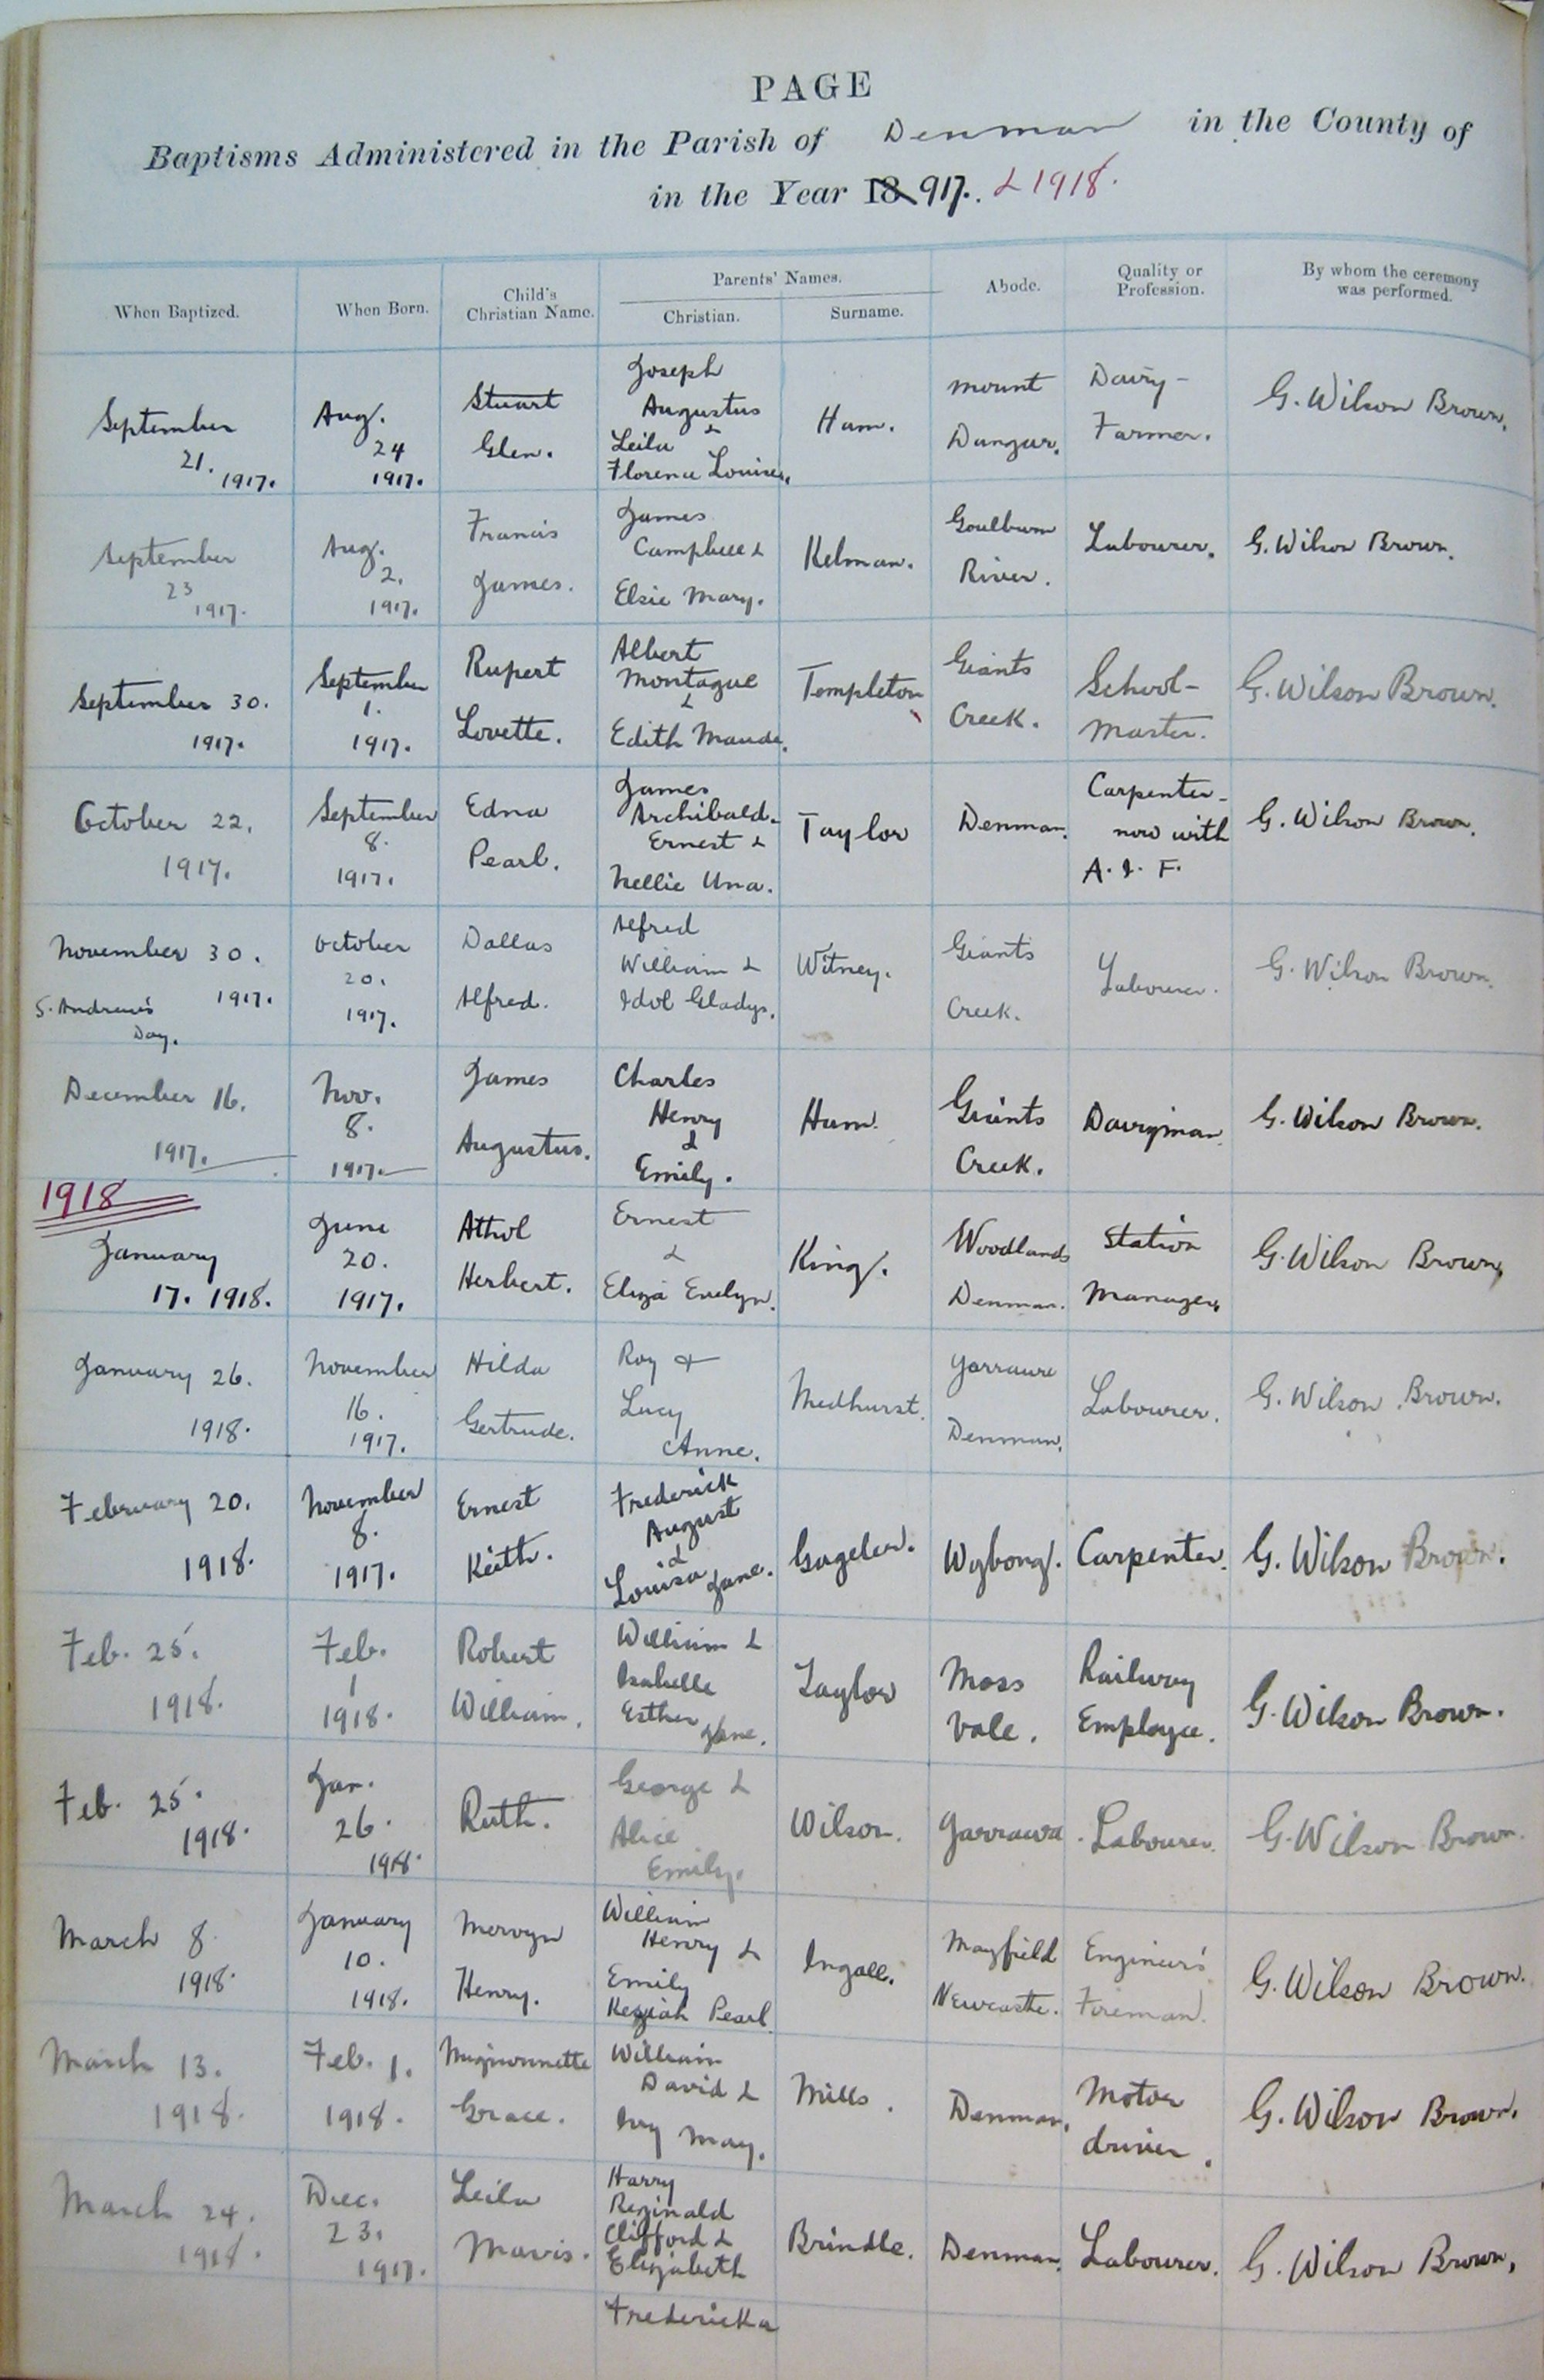 PAGE
Baptisms Administered in the Parish of Denman in the County of
in the Year 18 917. & 1918.
When Baptized. When Born. Child's Christian Name. Parents' Names. Christian. Surname. Abode. Quality or Profession. By whom the ceremony was performed.
September 21. 1917. Aug. 24 1917. Stuart Glen. Joseph Augustus & Leila Florence Louisa. Ham. Mount Dangar. Dairy-Farmer. G. Wilson Brown.
September 23 1917. Aug. 2. 1917. Francis James. James Campbell & Elsie Mary. Kelman. Goulburn River. Labourer. G. Wilson Brown.
September 30. 1917. September 1. 1917. Rupert Lovette. Albert Montague & Edith Maude. Templeton Giants Creek. School-Master. G. Wilson Brown.
October 22. 1917. September 8. 1917. Edna Pearl. James Archibald. Ernest & Nellie Una. Taylor Denman. Carpenter - now with A. I. F. G. Wilson Brown.
November 30. 1917. S. Andrew's Day. October 20. 1917. Dallas Alfred. Alfred William & Idol Gladys. Witney. Giants Creek. Labourer. G. Wilson Brown.
December 16. 1917. Nov. 8. 1917. James Augustus. Charles Henry & Emily. Ham. Giants Creek. Dairyman. G. Wilson Brown.
1918
January 17. 1918. June 20. 1917. Athol Herbert. Ernest & Eliza Evelyn. King. Woodlands Denman. Station Manager. G. Wilson Brown.
January 26. 1918. November 16. 1917. Hilda Gertrude. Roy & Lucy Anne. Medhurst. Denman. Labourer. G. Wilson Brown.
February 20. 1918. November 8. 1917. Ernest Keith. Frederick August & Louisa Jane. Gageler. Wybong. Carpenter. G. Wilson Brown.
Feb. 25. 1918. Feb. 1 1918. Robert William. William & Isabelle Esther Jane. Taylor Moss Vale. Railway Employee. G. Wilson Brown.
Feb. 25. 1918. Jan. 26. 1918. Ruth. George & Alice Emily. Wilson. Yarrawa. Labourer. G. Wilson Brown.
March 8. 1918. January 10. 1918. Mervyn Henry. William Henry & Emily Keziah Pearl. Ingall. Mayfield Newcastle. Engineer's Foreman. G. Wilson Brown.
March 13. 1918. Feb. 1. 1918. Mignonnette Grace. William David & Ivy May. Mills. Denman. Motor driver. G. Wilson Brown.
March 24. 1918. Dec. 23. 1917. Leila Mavis. Harry Reginald Clifford & Elizabeth Fredericka Brindle. Denman. Labourer. G. Wilson Brown.